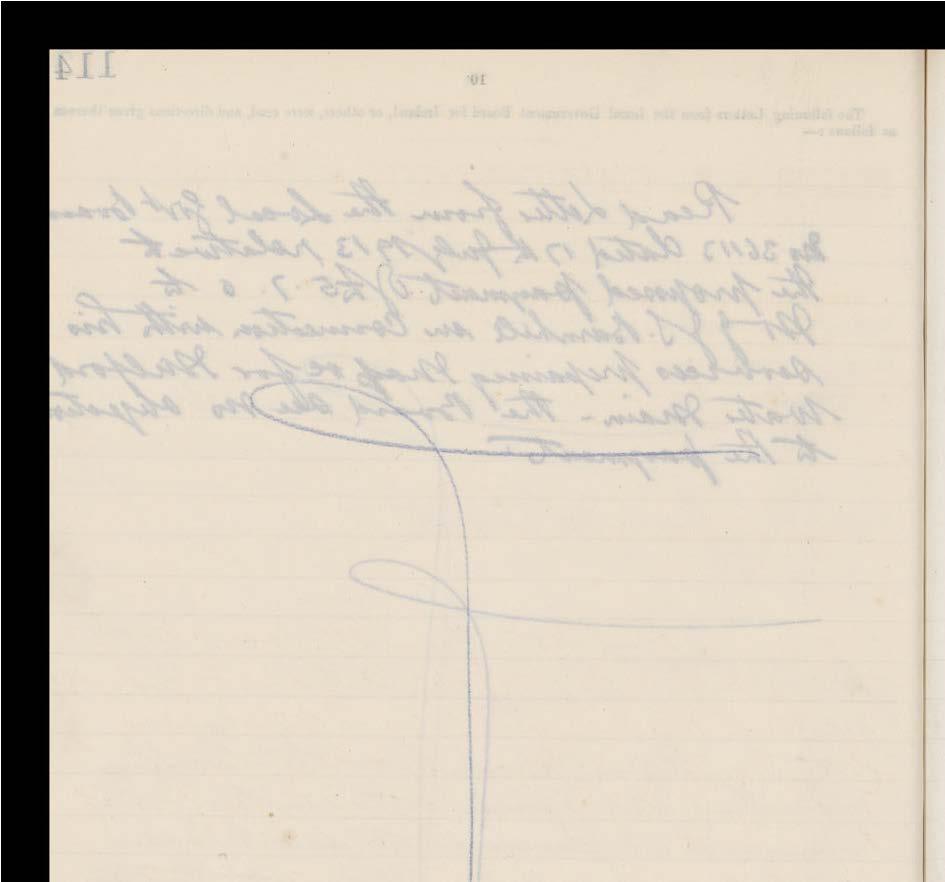 114
10
The following Letters from the Local Government Board for Ireland, or others, were read, and directions given thereon
as follows :—
Read Letter from the Local Govt
No 36113 dated 17th July 1913 relative to
the proposed payment of £5 7. 6 to
Mr J. J. in connection with his
services preparing Map re for
Water Main - the Board see no objection
to the payment